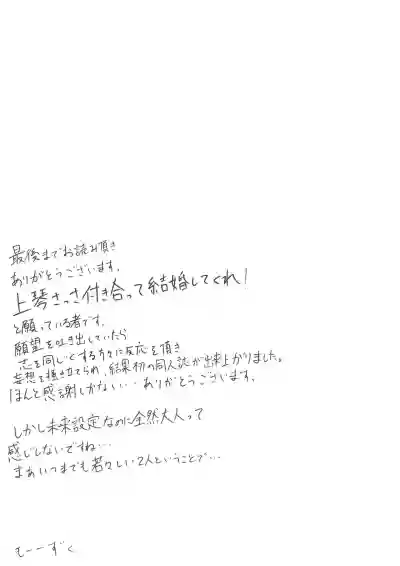 最後までお読み頂き
ありがとうございます。
上琴さっさ付き合って結婚してくれ!
と願っている者です。
願望を吐き出していたら
志を同じくする方々に反応を頂き
妄想を掻き立てられ、結果初の同人誌が出来上がりました。
ほんと感謝しかない・・ありがとうございます。
しかし未来設定なのに全然大人って
感じしないですね…
まあいつまでも若々しい2人ということで…
もーーずく